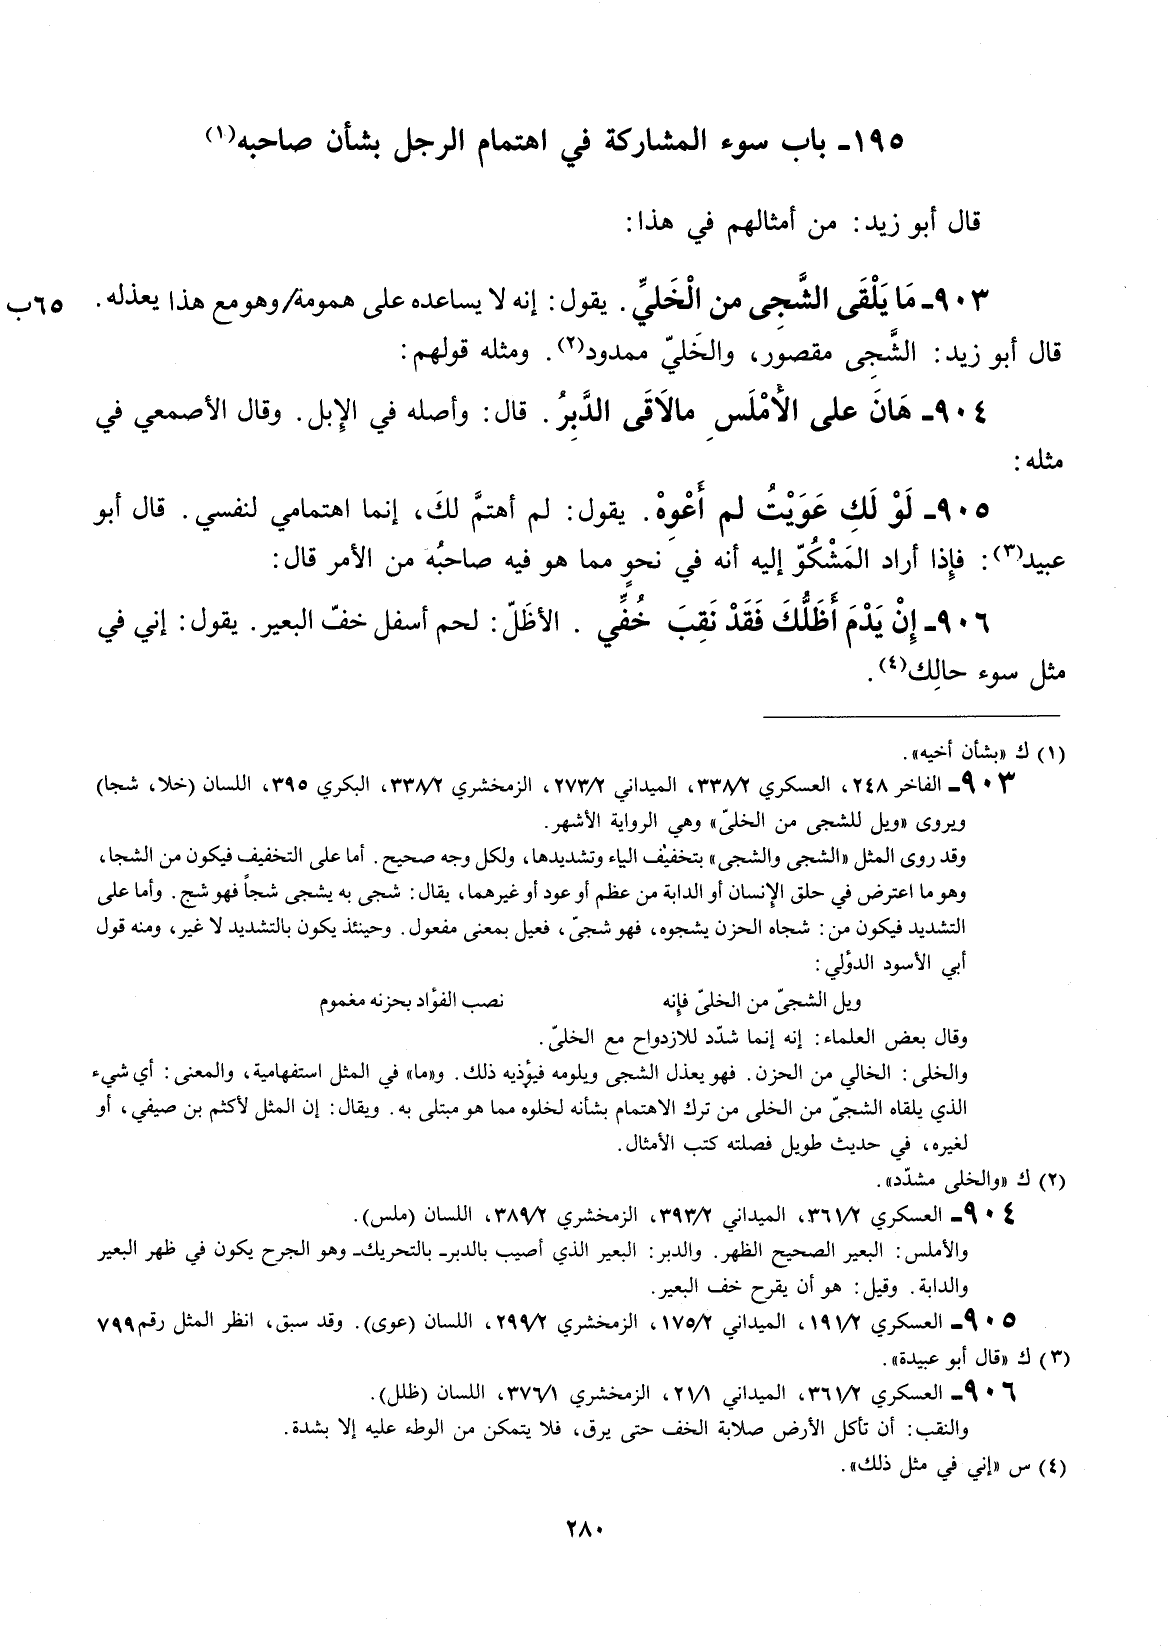 ١٩٥ـ باب سوء المشاركة في اهتمام الرجل بشأن صاحبه(١)
قال أبو زيد: من أمثالهم في هذا:
٩٠٣ـ مَا يَلْقَى الشَّجِى من الْخَليِّ. يقول: إنه لا يساعده على همومة/وهو مع هذا يعذله. ٦٥ب
قال أبو زيد: الشَّجِى مقصور، والخَليّ ممدود(٢). ومثله قولهم:
٩٠٤ـ هَانَ على الأَمْلَسِ مالاَقَى الدَّبِرُ. قال: وأصله في الإِبل. وقال الأصمعي في
مثله:
٩٠٥ـ لَوْ لَكِ عَوَيْتُ لم أَعْوِهْ. يقول: لم أهتمَّ لكَ، إنما اهتمامي لنفسي. قال أبو
عبيد(٣): فإِذا أراد المَشْكُوّ إليه أنه في نحوٍ مما هو فيه صاحبُه من الأمر قال:
٩٠٦ـ إِنْ يَدْمَ أَظَلُّكَ فَقَدْ نَقِبَ خُفِّي. الأظَلّ: لحم أسفل خفّ البعير. يقول: إني في
مثل سوء حالِك(٤).
(١) ك «بشأن أخيه».
٩٠٣ـ الفاخر ٢٤٨، العسكري ٣٣٨/٢، الميداني ٢٧٣/٢، الزمخشري ٣٣٨/٢، البكري ٣٩٥، اللسان (خلا، شجا)
ويروى «ويل للشجى من الخلىّ» وهي الرواية الأشهر.
وقد روى المثل «الشجى والشجى» بتخفيف الياء وتشديدها، ولكل وجه صحيح. أما على التخفيف فيكون من الشجا،
وهو ما اعترض في حلق الإِنسان أو الدابة من عظم أو عود أو غيرهما، يقال: شجى به يشجى شجاً فهو شج. وأما على
التشديد فيكون من: شجاه الحزن يشجوه، فهو شجىّ، فعيل بمعنى مفعول. وحينئذ يكون بالتشديد لا غير، ومنه قول
أبي الأسود الدؤلي:
ويل الشجىّ من الخلىّ فإِنه نصب الفؤاد بحزنه مغموم
وقال بعض العلماء: إنه إنما شدّد للازدواج مع الخلىّ.
والخلى: الخالي من الحزن. فهو يعذل الشجى ويلومه فيؤذيه ذلك. و«ما» في المثل استفهامية، والمعنى: أي شيء
الذي يلقاه الشجىّ من الخلى من ترك الاهتمام بشأنه لخلوه مما هو مبتلى به. ويقال: إن المثل لأكثم بن صيفي، أو
لغيره، في حديث طويل فصلته كتب الأمثال.
(٢) ك «والخلى مشدّد».
٩٠٤ـ العسكري ٣٦١/٢، الميداني ٣٩٣/٢، الزمخشري ٣٨٩/٢، اللسان (ملس).
والأملس: البعير الصحيح الظهر. والدبر: البعير الذي أصيب بالدبرـ بالتحريك‍ـ وهو الجرح يكون في ظهر البعير
والدابة. وقيل: هو أن يقرح خف البعير.
٩٠٥ـ العسكري ١٩١/٢، الميداني ١٧٥/٢، الزمخشري ٢٩٩/٢، اللسان (عوى). وقد سبق، انظر المثل رقم ٧٩٩
(٣) ك «قال أبو عبيدة».
٩٠٦ـ العسكري ٣٦١/٢، الميداني ٢١/١، الزمخشري ٣٧٦/١، اللسان (ظلل).
والنقب: أن تأكل الأرض صلابة الخف حتى يرق، فلا يتمكن من الوطء عليه إلا بشدة.
(٤) س «إني في مثل ذلك».
٢٨٠